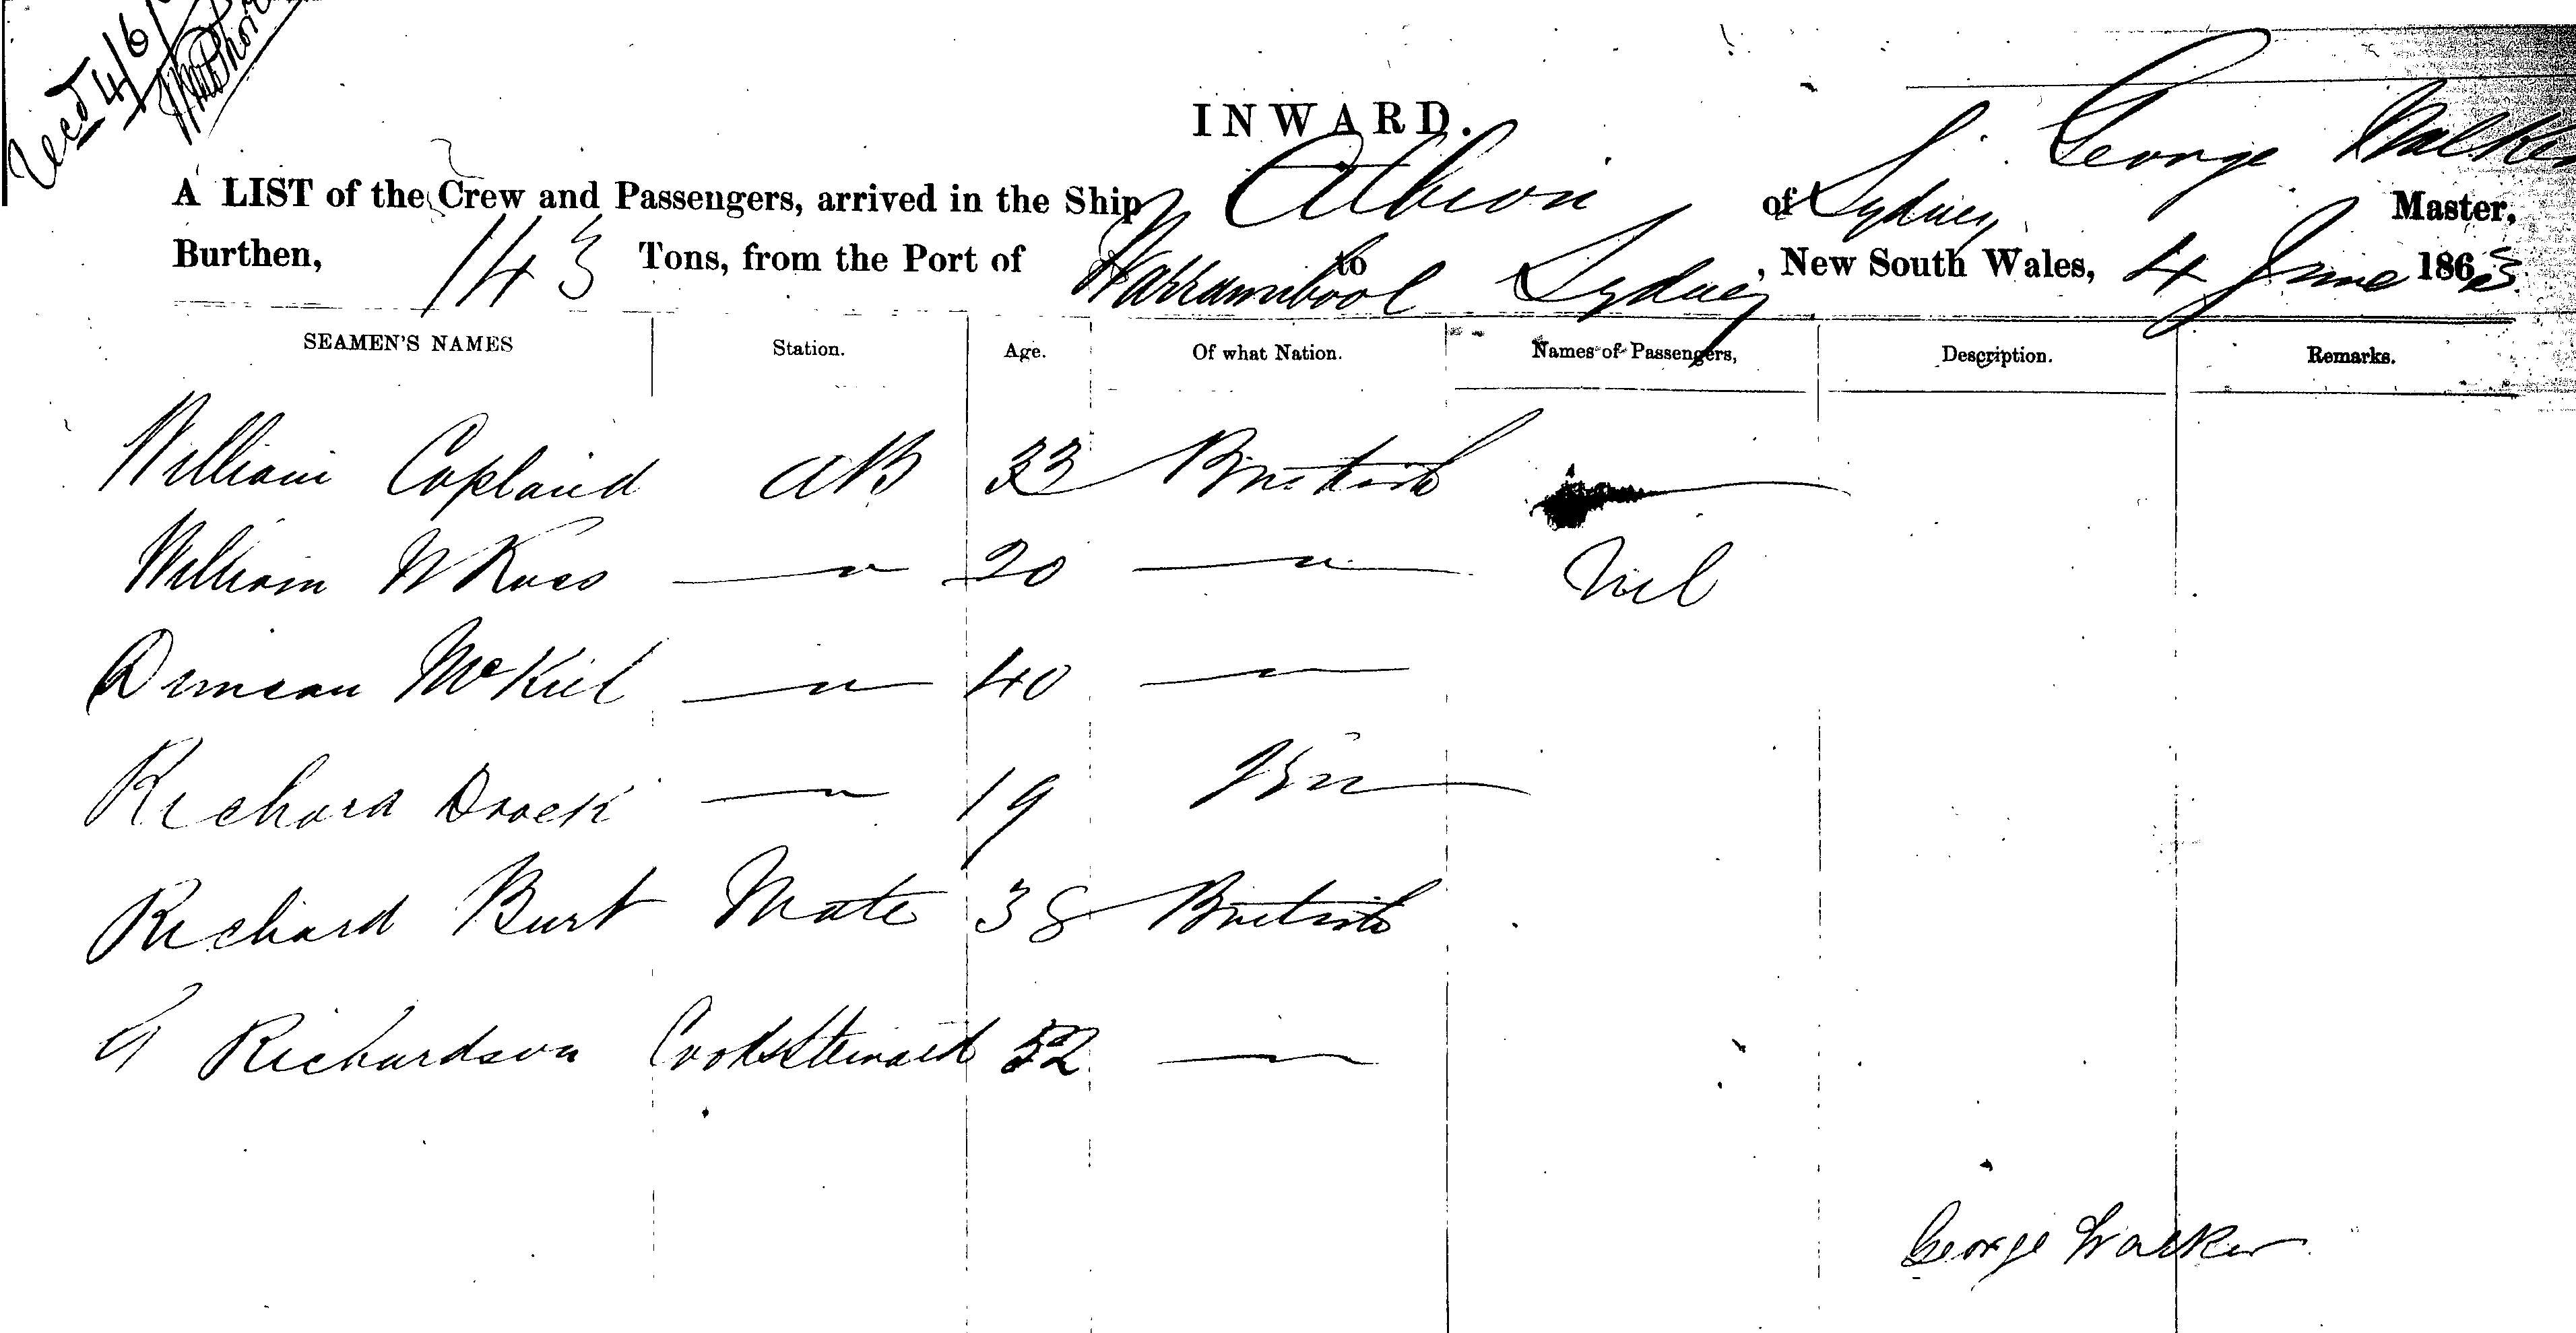 Recd 4/6/
INWARD.
A LIST of the Crew and Passengers, arrived in the Ship Albion of Sydney George Walker Master,
Burthen, 143 Tons, from the Port of Warrambool to Sydney, New South Wales, 4 June 1863
SEAMEN'S NAMES Station. Age. Of what Nation. Names of Passengers, Description. Remarks.
William Copland AB 33 British
William W Ross — " 20 — " — Nil
Duncan McKiel — " — 40 —
Richard — " 19 Br
Richard Burt Mate 38 British
Richardson Cook & Steward 32 —
George Walker